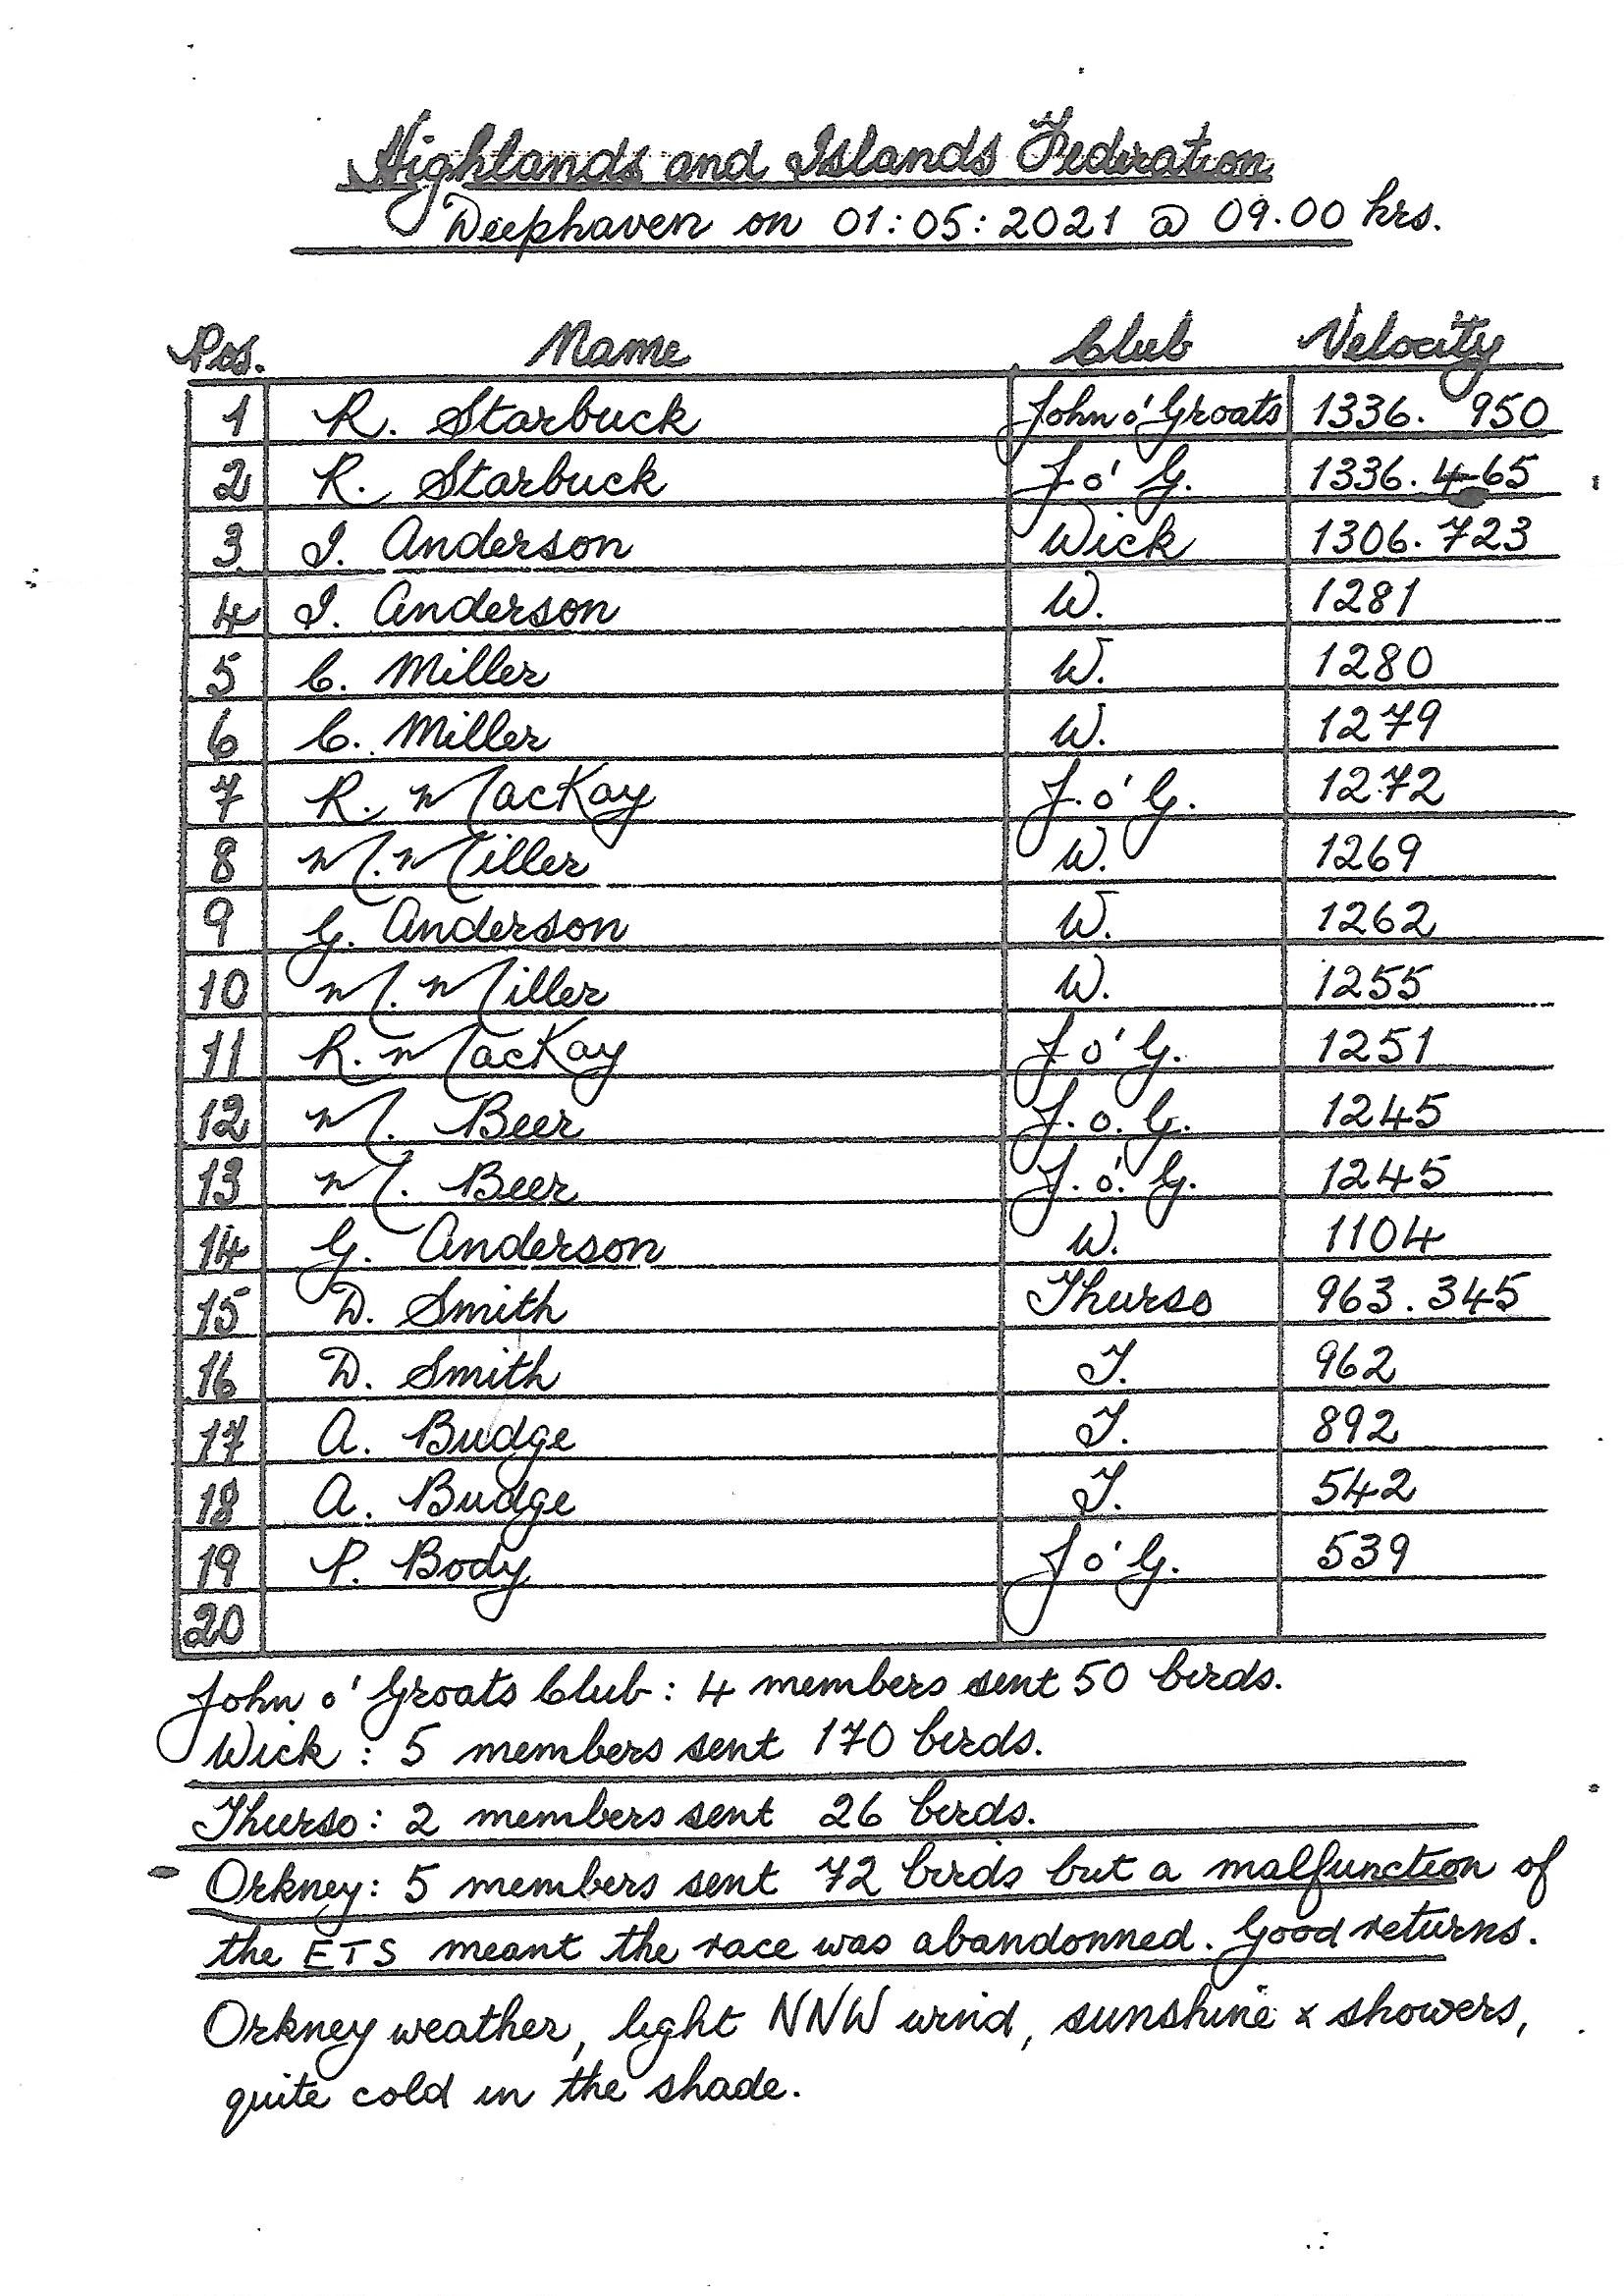 Highlands and Islands Federation
Deephaven on 01:05:2021 @ 09.00 hrs.
Pos. Name Club Velocity
1 R. Starbuck John o' Groats 1336. 950
2 R. Starbuck J o' G. 1336.465
3 I. Anderson Wick 1306.723
4 I. Anderson W. 1281
5 C. Miller W. 1280
6 C. Miller W. 1279
7 R. MacKay J. o' G. 1272
8 M. Miller W. 1269
9 G. Anderson W. 1262
10 M. Miller W. 1255
11 R. MacKay J o' G. 1251
12 M. Beer J. o. G. 1245
13 M. Beer J. o'. G. 1245
14 G. Anderson W. 1104
15 D. Smith Thurso 963.345
16 D. Smith T. 962
17 A. Budge T. 892
18 A. Budge T. 542
19 P. Body J o' G. 539
20
John o' Groats Club: 4 members sent 50 birds.
Wick: 5 members sent 170 birds.
Thurso: 2 members sent 26 birds.
Orkney: 5 members sent 72 birds but a malfunction of
the ETS meant the race was abandonned. Good returns.
Orkney weather, light NNW wind, sunshine & showers,
quite cold in the shade.